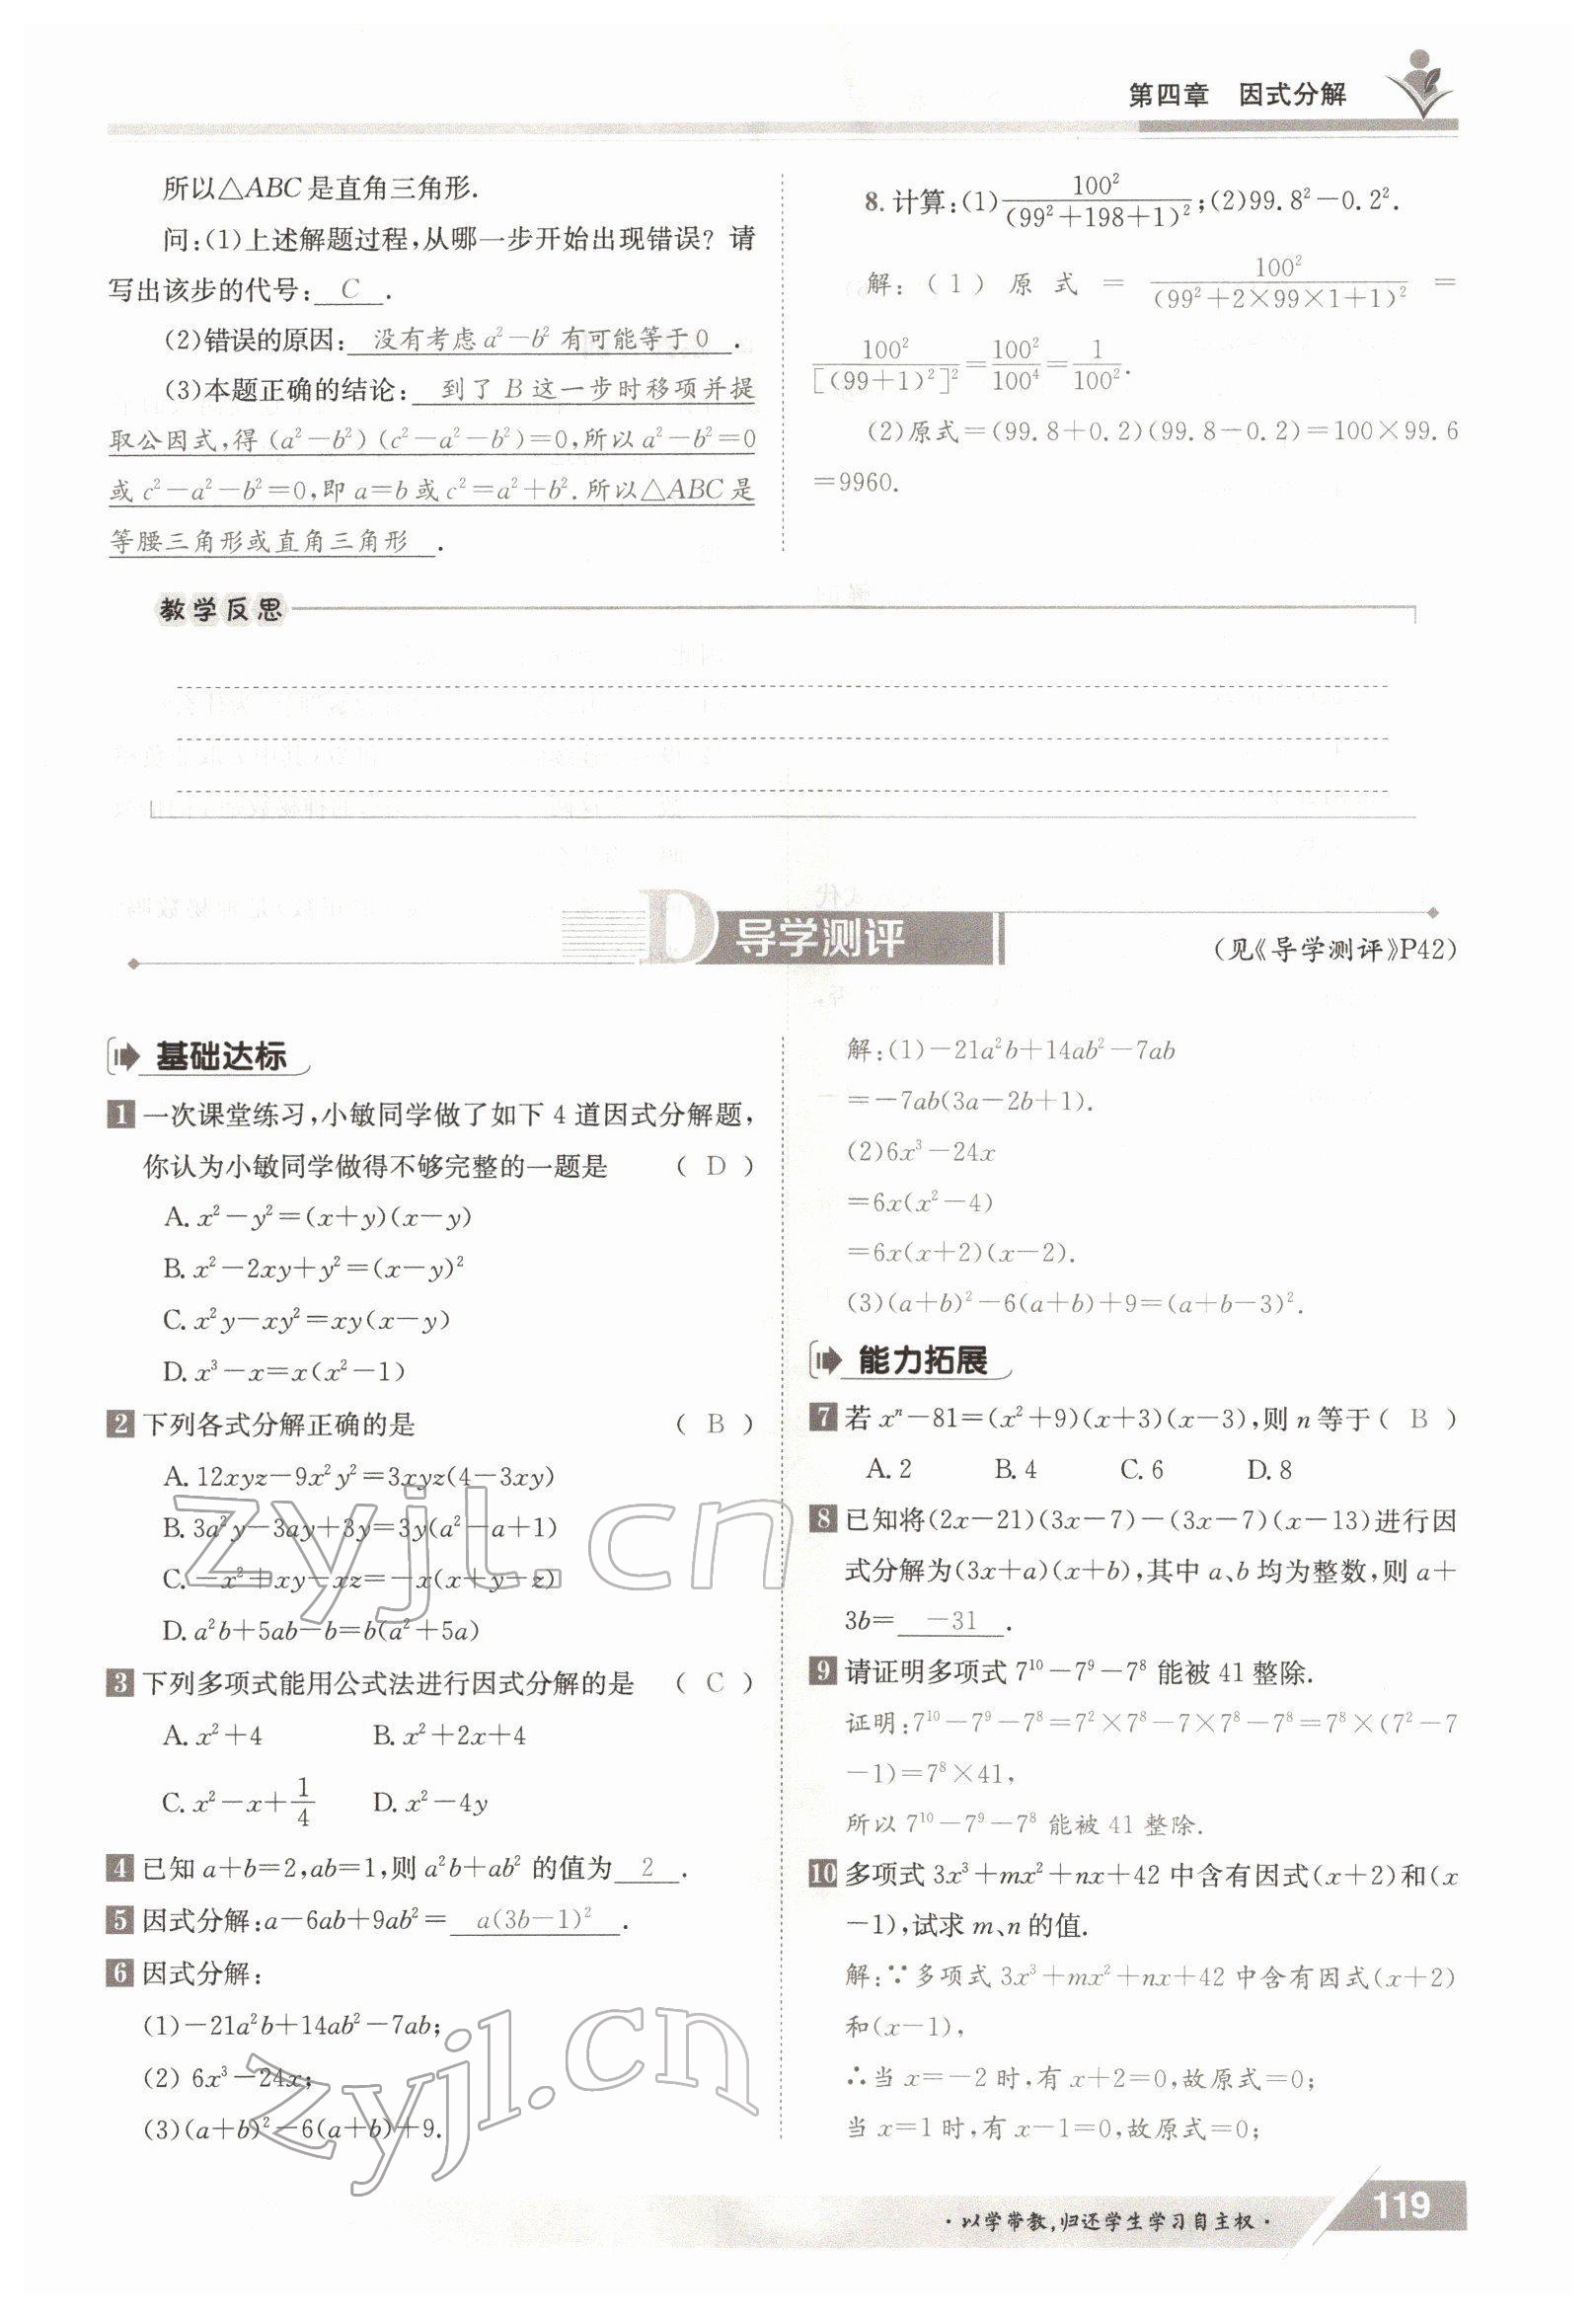 第四章 因式分解
所以△ABC是直角三角形.
问:(1)上述解题过程,从哪一步开始出现错误?请
写出该步的代号: C .
(2)错误的原因: 没有考虑a²-b²有可能等于0 .
(3)本题正确的结论: 到了B这一步时移项并提
取公因式,得(a²-b²)(c²-a²-b²)=0,所以a²-b²=0
或c²-a²-b²=0,即a=b或c²=a²+b².所以△ABC是
等腰三角形或直角三角形 .
8.计算:(1)100²/(99²+198+1)²;(2)99.8²-0.2².
解:(1)原式=100²/(99²+2×99×1+1)²=
100²/[(99+1)²]²=100²/100⁴=1/100².
(2)原式=(99.8+0.2)(99.8-0.2)=100×99.6
=9960.
教学反思
D 导学测评
(见《导学测评》P42)
基础达标
1 一次课堂练习,小敏同学做了如下4道因式分解题,
你认为小敏同学做得不够完整的一题是 ( D )
A. x²-y²=(x+y)(x-y)
B. x²-2xy+y²=(x-y)²
C. x²y-xy²=xy(x-y)
D. x³-x=x(x²-1)
2 下列各式分解正确的是 ( B )
A. 12xyz-9x²y²=3xyz(4-3xy)
B. 3a²y-3ay+3y=3y(a²-a+1)
C. -x²+xy-xz=-x(x+y-z)
D. a²b+5ab-b=b(a²+5a)
3 下列多项式能用公式法进行因式分解的是 ( C )
A. x²+4 B. x²+2x+4
C. x²-x+1/4 D. x²-4y
4 已知a+b=2,ab=1,则a²b+ab²的值为 2 .
5 因式分解:a-6ab+9ab²= a(3b-1)² .
6 因式分解:
(1)-21a²b+14ab²-7ab;
(2) 6x³-24x;
(3)(a+b)²-6(a+b)+9.
解:(1)-21a²b+14ab²-7ab
=-7ab(3a-2b+1).
(2)6x³-24x
=6x(x²-4)
=6x(x+2)(x-2).
(3)(a+b)²-6(a+b)+9=(a+b-3)².
能力拓展
7 若xⁿ-81=(x²+9)(x+3)(x-3),则n等于( B )
A. 2 B. 4 C. 6 D. 8
8 已知将(2x-21)(3x-7)-(3x-7)(x-13)进行因
式分解为(3x+a)(x+b),其中a、b均为整数,则a+
3b= -31 .
9 请证明多项式7¹⁰-7⁹-7⁸能被41整除.
证明:7¹⁰-7⁹-7⁸=7²×7⁸-7×7⁸-7⁸=7⁸×(7²-7
-1)=7⁸×41,
所以7¹⁰-7⁹-7⁸能被41整除.
10 多项式3x³+mx²+nx+42中含有因式(x+2)和(x
-1),试求m、n的值.
解:∵多项式3x³+mx²+nx+42中含有因式(x+2)
和(x-1),
∴当x=-2时,有x+2=0,故原式=0;
当x=1时,有x-1=0,故原式=0;
·以学带教,归还学生学习自主权·
119
zyjl.cn
zyjl.cn